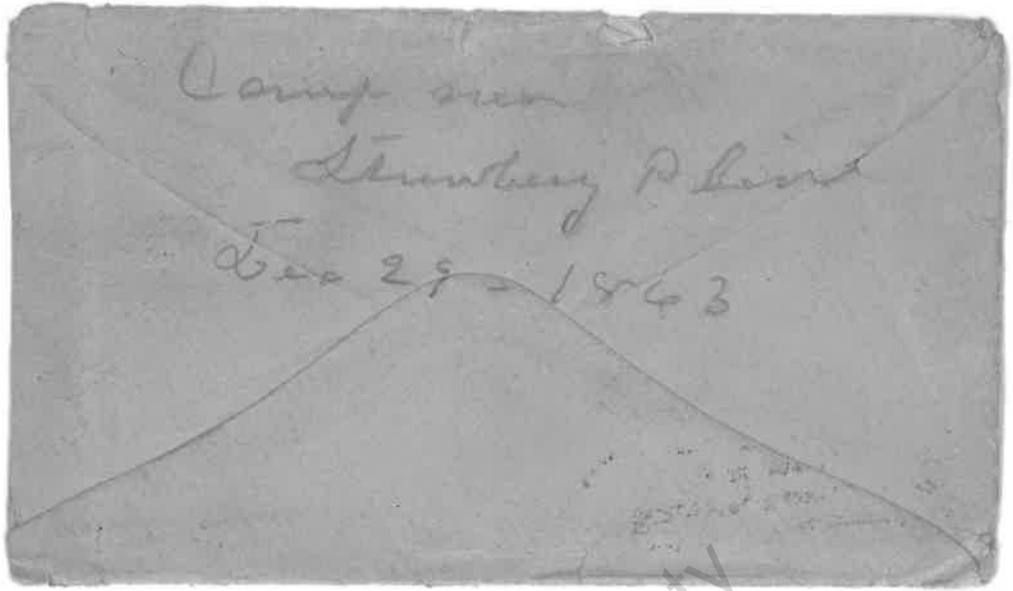 Camp near
Strawbery Plains
Dec 29 - 1863
ty